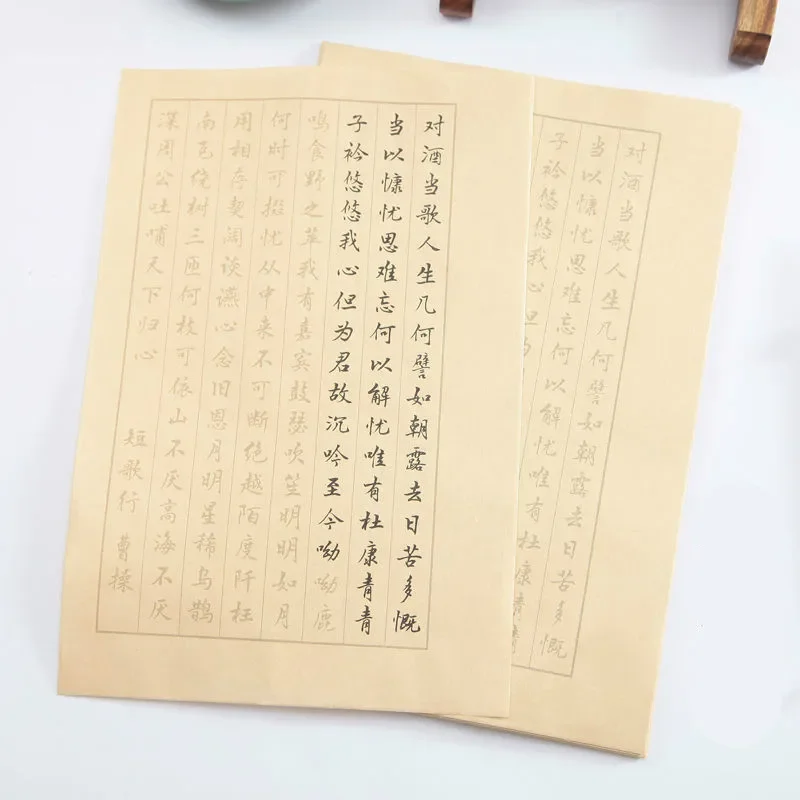 对酒当歌人生几何譬如朝露去日苦多慨
当以慷忧思难忘何以解忧唯有杜康青青
子衿悠悠我心但为君故沉吟至今呦呦鹿
鸣食野之苹我有嘉宾鼓瑟吹笙明明如月
何时可掇忧从中来不可断绝越陌度阡枉
用相存契阔谈讌心念旧恩月明星稀乌鹊
南飞绕树三匝何枝可依山不厌高海不厌
深周公吐哺天下归心
短歌行 曹操
对酒当歌人生几何譬如朝露去日苦多慨
当以慷忧思难忘何以解忧唯有杜康青青
子衿悠悠我心但为